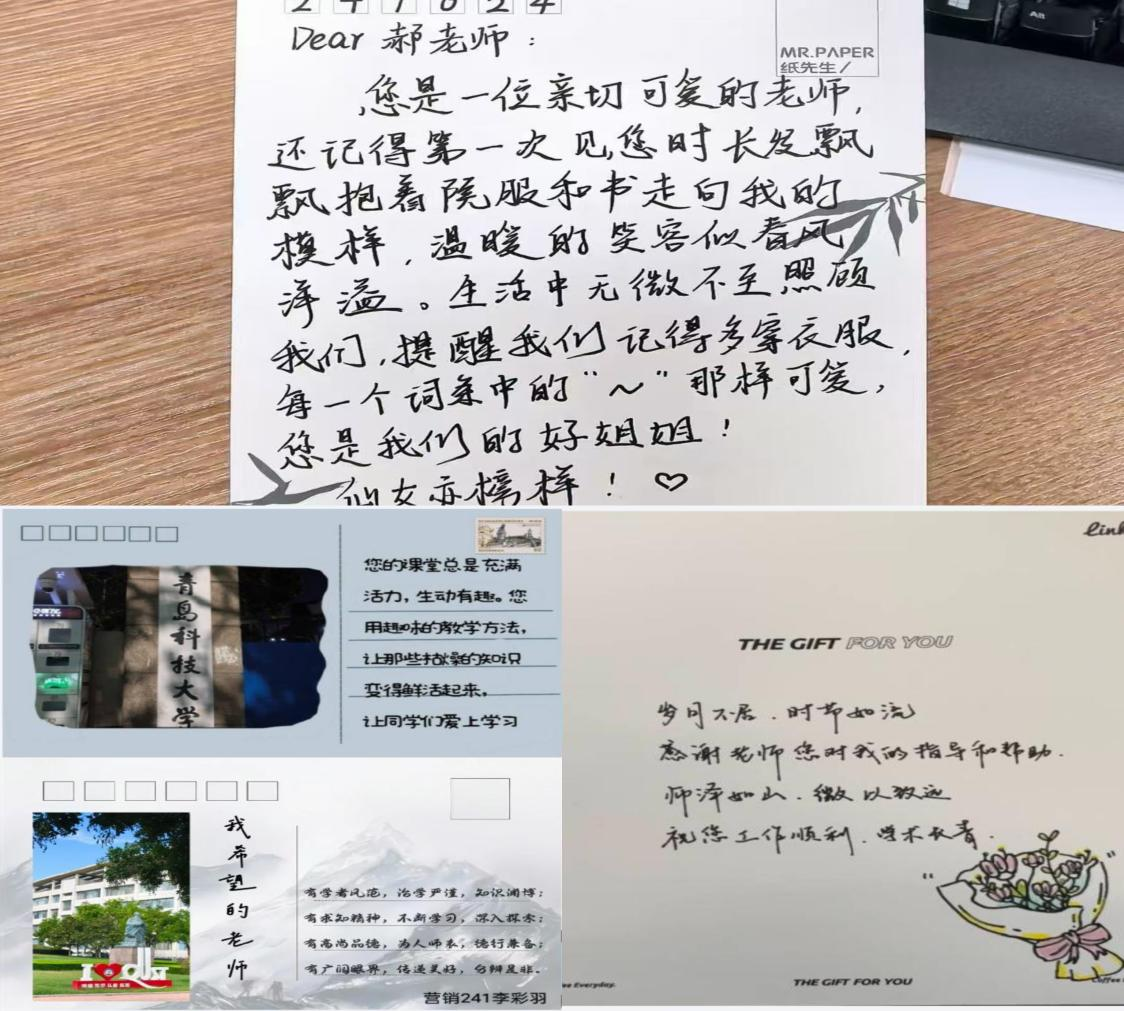 Dear 郝老师：
MR.PAPER
纸先生/
您是一位亲切可爱的老师，
还记得第一次见您时长发飘
飘抱着院服和书走向我的
模样，温暖的笑容似春风
洋溢。生活中无微不至照顾
我们，提醒我们记得多穿衣服，
每一个词条中的“～”那样可爱，
您是我们的好姐姐！
似友亦榜样！♡
青岛科技大学
您的课堂总是充满
活力，生动有趣。您
用趣味的教学方法，
让那些枯燥的知识
变得鲜活起来，
让同学们爱上学习
THE GIFT FOR YOU
岁月不居．时节如流
感谢老师您对我的指导和帮助．
师泽如山．微以致远
祝您工作顺利．学术长青．
THE GIFT FOR YOU
我希望的老师
有学者风范，治学严谨，知识渊博；
有求知精神，不断学习，深入探索；
有高尚品德，为人师表，德行兼备；
有广阔眼界，传递美好，分辨是非。
营销241李彩羽